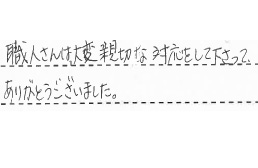 職人さんは大変親切な対応をして下さって、
ありがとうございました。